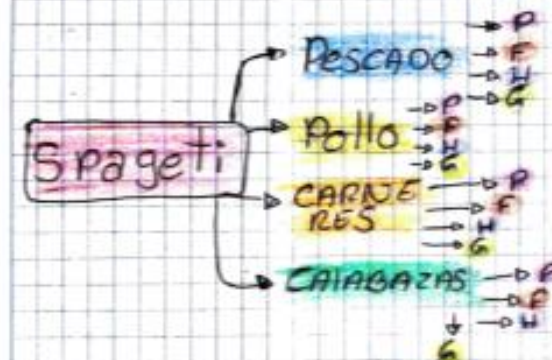 Spageti
PESCADO
P
F
H
G
Pollo
P
F
H
G
CARNE
RES
P
F
H
G
CAlABAZAS
P
F
H
G